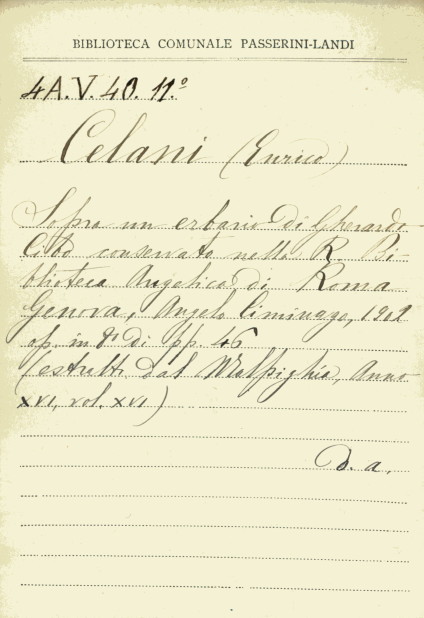 BIBLIOTECA COMUNALE PASSERINI-LANDI
4A.V.40.11.º
Celani (Enrico)
Sopra un erbario di Gherardo
Cibo conservato nella R. Bi-
blioteca Angelica di Roma
Genova, Angelo Ciminago, 1902
op. in 8º di pp. 46
(estratti dal Malpighia, Anno
XVI, vol. XVI)
D. a.